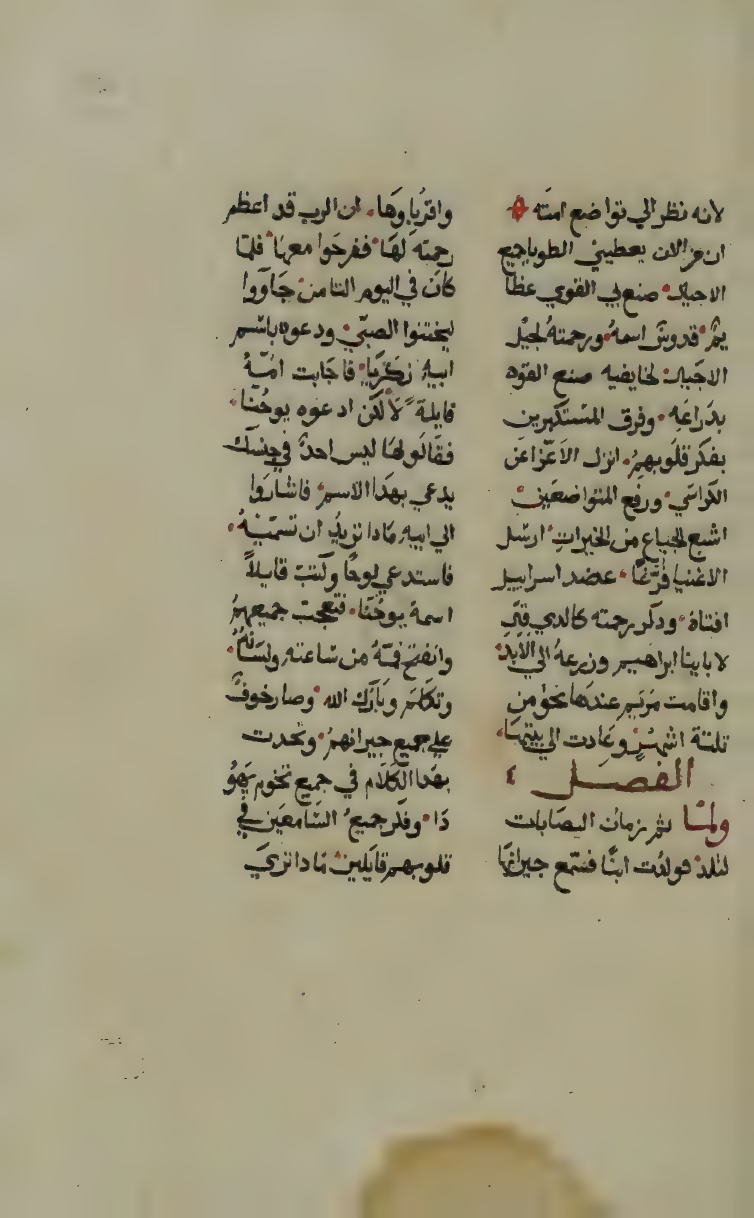 لانه نظر الي تواضع امته
ان من الان يعطيني الطوبا جميع
الاجيال صنع بي القوي عظا
يم قدوس اسمه ورحمته لجيل
الاجيال لخايفيه صنع القوه
بدراعه وفرق المستكبرين
بفكر قلوبهم انزل الاعزا عن
الكراسي ورفع المتواضعين
اشبع الجياع من الخيرات ارسل
الاغنيا فرغا عضد اسراييل
افتاه ودكر رحمته كالدي
لاباينا ابراهيم وزرعه الي الابد
واقامت مريم عندها نحو من
تلتة اشهر وعادت الي بيتها
الفصل ٤
ولما تم زمان اليصابات
لتلد فولدت ابنا فسمع جيرانها
واقرباوها ان الرب قد اعظم
رحمته لها ففرحوا معها فلما
كان في اليوم التامن جاووا
ليختنوا الصبي ودعوه باسم
ابيه زكريا فاجابت امه
قايلة لا لكن ادعوه يوحنا
فقالو لها ليس احد في جنسك
يدعي بهدا الاسم فاشاروا
الي ابيه مادا تريد ان تسميه
فاستدعي لوحا وكتب قايلا
اسمه يوحنا فتعجب جميعهم
وانفتح فمه من ساعته ولسانه
وتكلم وبارك الله وصار خوف
علي جميع جيرانهم وتحدت
بهدا الكلام في جميع تخوم يهو
دا وفكر جميع السامعين في
قلوبهم قايلين مادا تري